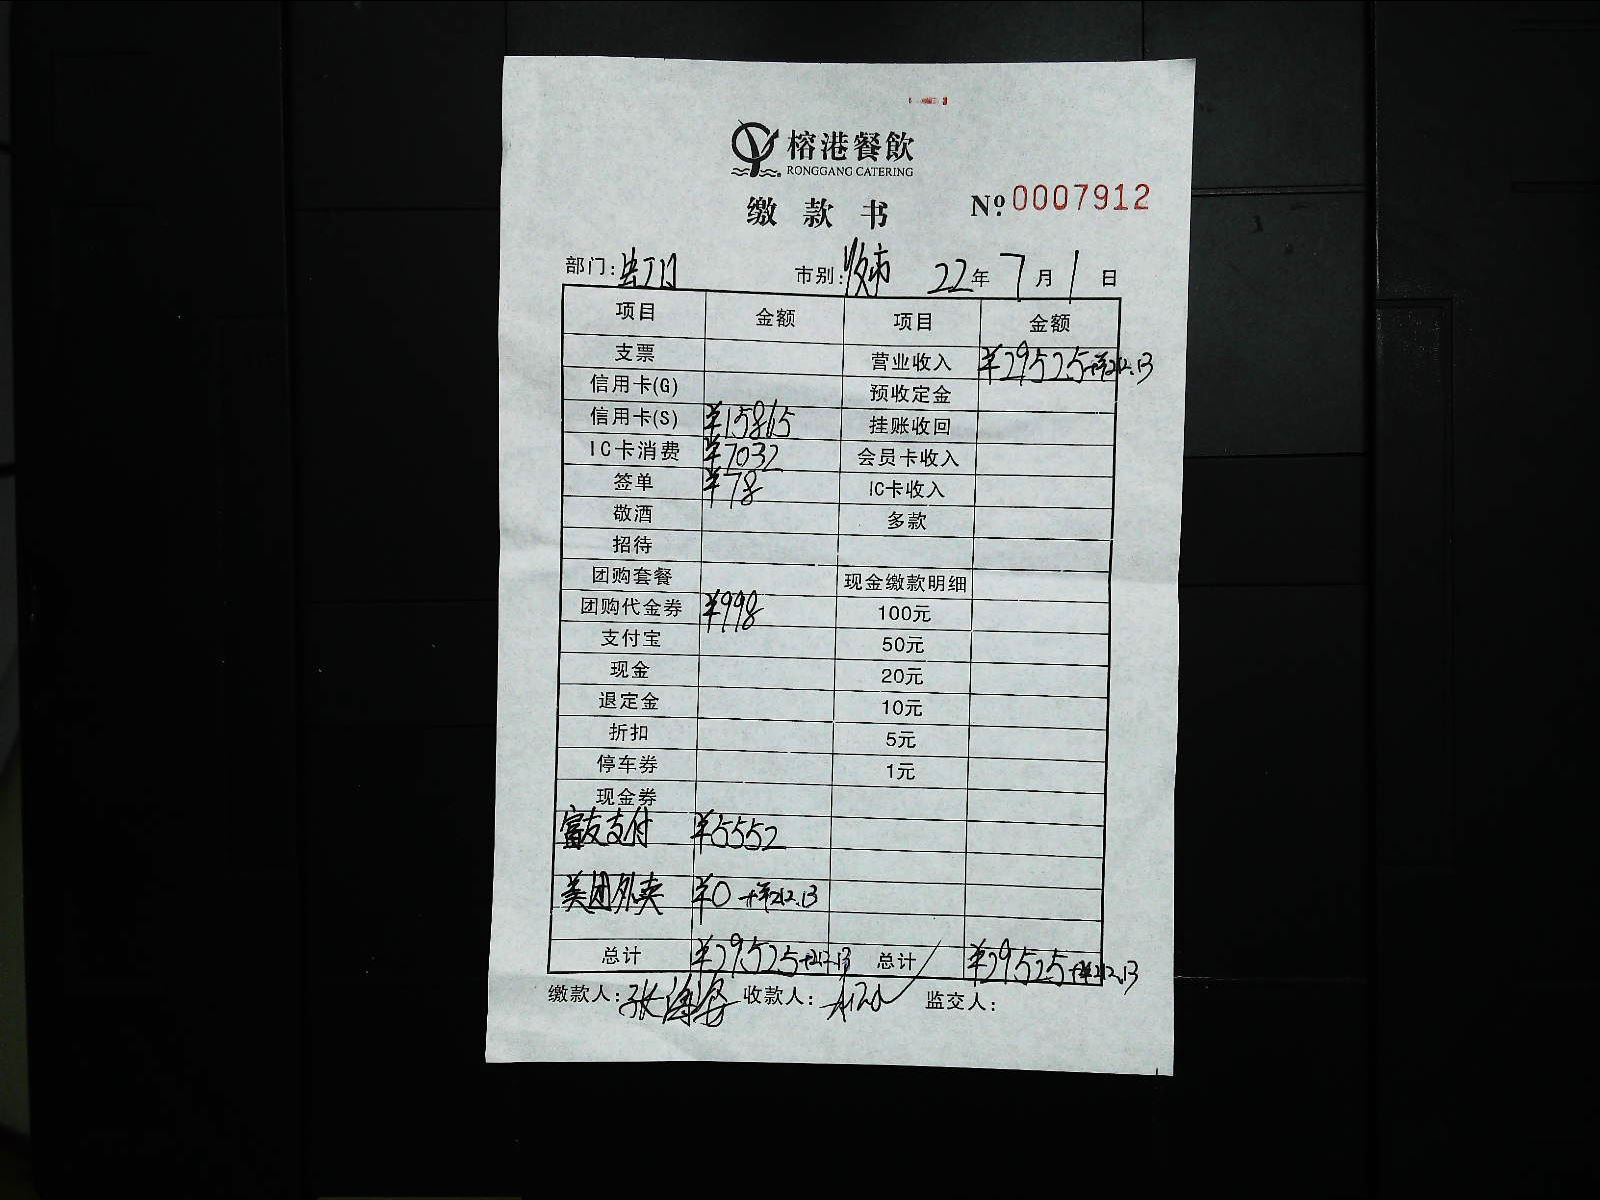 榕港餐飲
RONGGANG CATERING
缴款书 № 0007912
部门: 市别: 22年7月1日
项目 金额 项目 金额
支票 营业收入 ¥29525+¥212.13
信用卡(G) 预收定金
信用卡(S) ¥15865 挂账收回
IC卡消费 ¥7032 会员卡收入
签单 ¥78 IC卡收入
敬酒 多款
招待
团购套餐 现金缴款明细
团购代金券 ¥998 100元
支付宝 50元
现金 20元
退定金 10元
折扣 5元
停车券 1元
现金券
富友支付 ¥5552
美团外卖 ¥0+¥212.13
总计 ¥29525+212.13 总计 ¥29525+¥212.13
缴款人: 张海 收款人: 监交人: